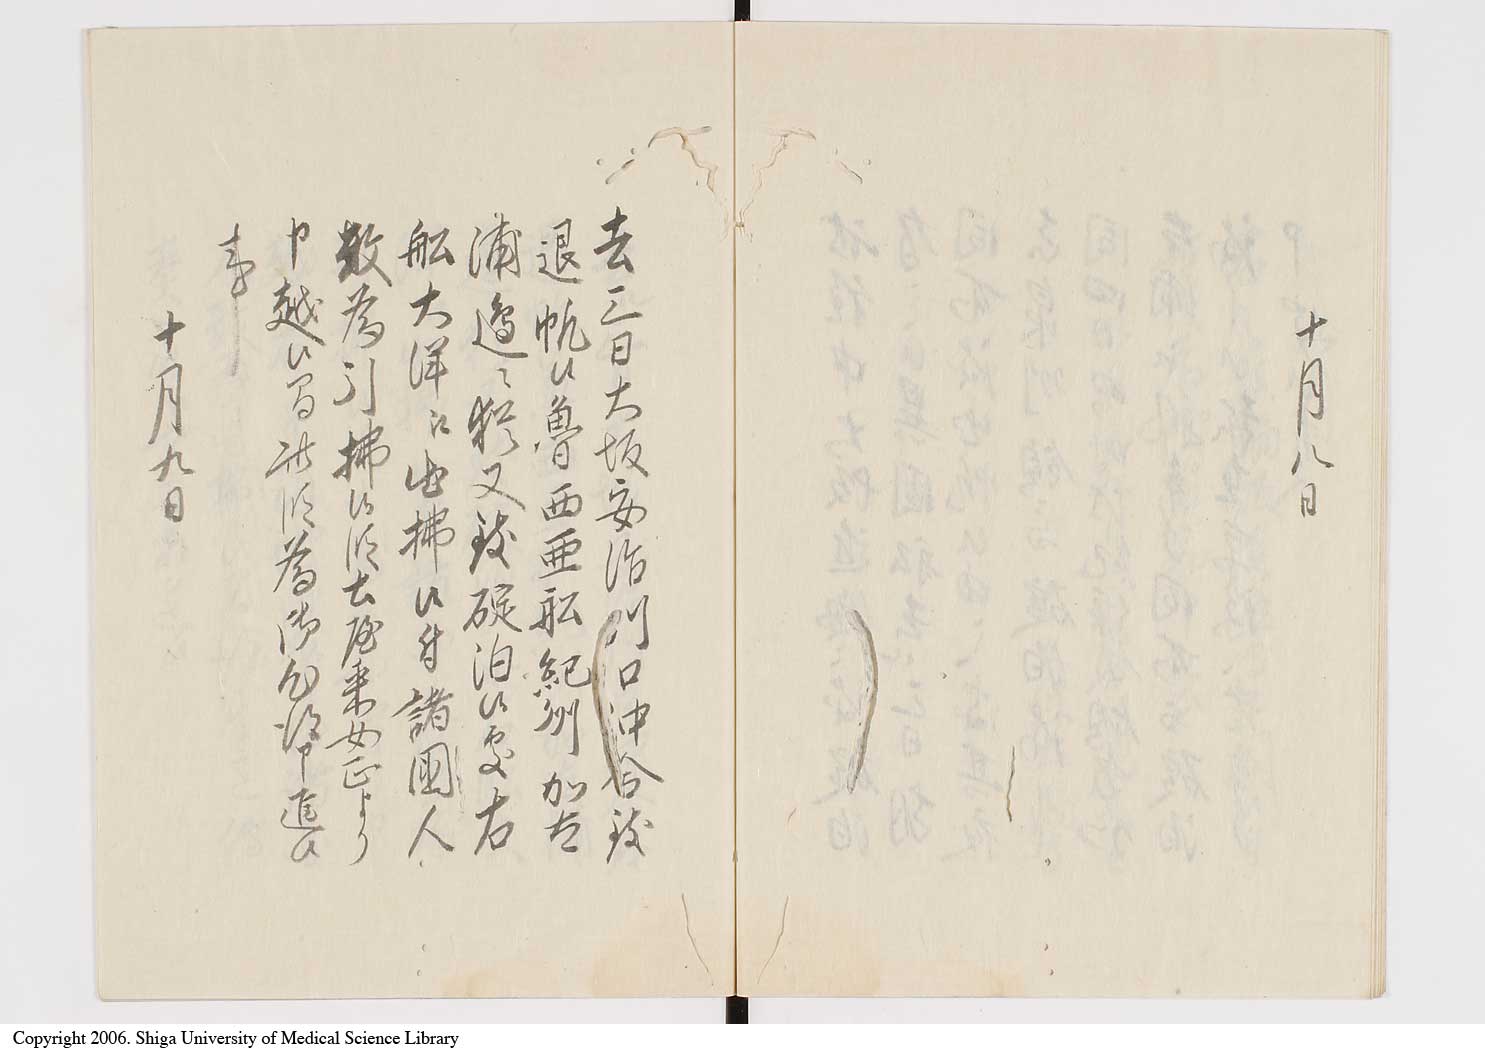 十月八日
去三日大坂安治川口沖合致
退帆候魯西亜船紀州加太
浦邉ニ猶又致碇泊候処右
船大洋江出拂候付諸國人
数為引拂候段土屋采女正より
申越候間此段為御知得申進候
事
十月九日
Copyright 2006. Shiga University of Medical Science Library